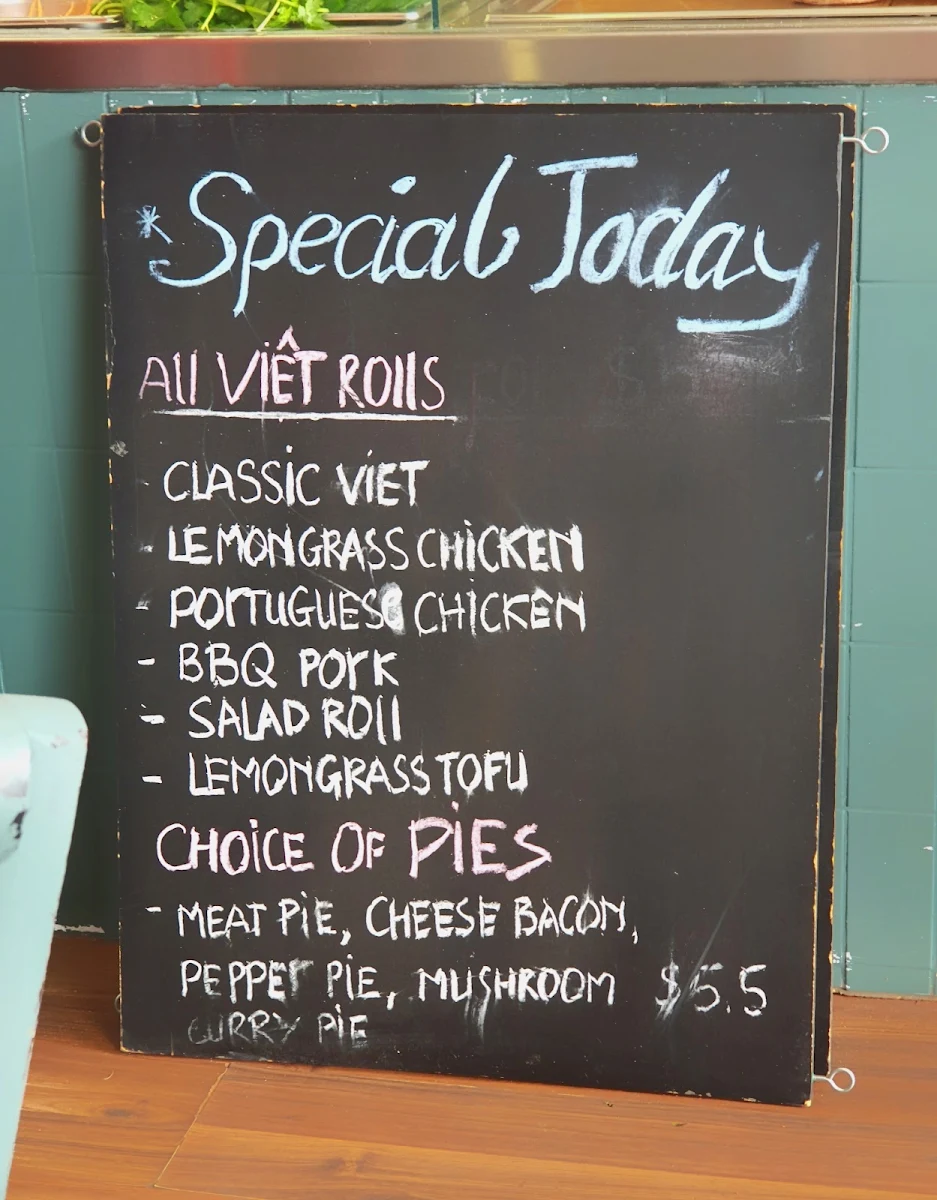 * Special Today
All VIÊT ROllS
CLASSiC ViET
- LEMONGRASS CHiCKEN
- PORTUGUESE CHiCKEN
- BBQ PORK
- SALAD ROll
- LEMONGRASS TOFU
CHOiCE OF PiES
- MEAT PiE, CHEESE BACON,
PEPPER PiE, MUSHROOM $5.5
CURRY PiE